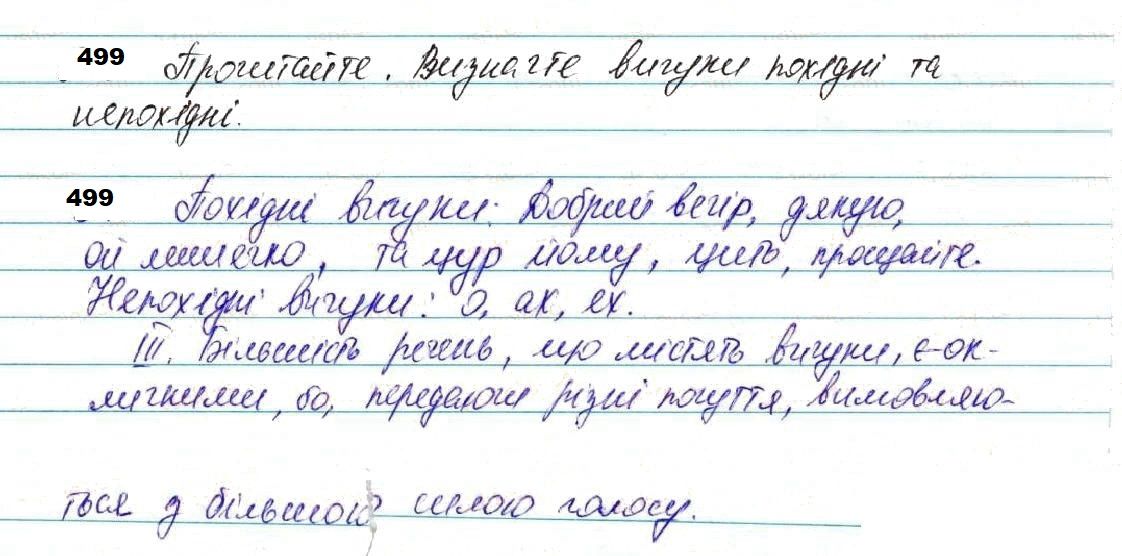 499 Прочитайте. Визначте вигуки похідні та
непохідні.
499 Похідні вигуки: Добрий вечір, дякую,
ой лишечко, та цур йому, цить, прощайте.
Непохідні вигуки: о, ах, ех.
III. Більшість речень, що містять вигуки, є ок-
личними, бо, передаючи різні почуття, вимовляю-
ться з більшою силою голосу.